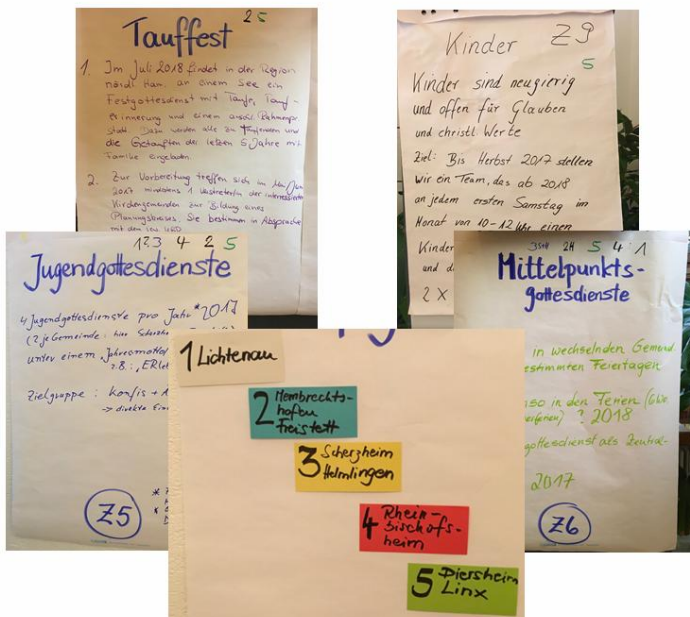 2 5
Tauffest
1. Im Juli 2018 findet in der Region
nördl. Han. an einem See ein
Festgottesdienst mit Taufe, Tauf-
erinnerung und einem anschl. Rahmenpr
statt. Dazu werden alle zu Taufenden und
die Getauften der letzten 5 Jahre mit
Familie eingeladen.
2. Zur Vorbereitung treffen sich im
2017 mindestens 1 VertreterIn der interessierten
Kirchengemeinden zur Bildung eines
Planungskreises. Sie bestimmen in Absprache
mit dem
Kinder Z9
5
Kinder sind neugierig
und offen für Glauben
und christl. Werte
Ziel: Bis Herbst 2017 stellen
wir ein Team, das ab 2018
an jedem ersten Samstag im
Monat von 10-12 Uhr einen
Kinder
und d
2 X
1 2 3 4 2 5
Jugendgottesdienste
4 Jugendgottesdienste pro Jahr * 2017
(2 je Gemeinde: hier
unter einem Jahresmotto
z.B.:
Zielgruppe: Konfis +
-> direkte
Z5
2H 5 4 1
Mittelpunkts-
gottesdienste
in wechselnden Gemeind
estimmten Feiertagen
so in den Ferien
? 2018
gottesdienst als Zentral-
2017
Z6
1 Lichtenau
2 Membrechts-
hofen
Freistett
3 Scherzheim
Helmlingen
4 Rhein-
bischofs-
heim
5 Diersheim
Linx